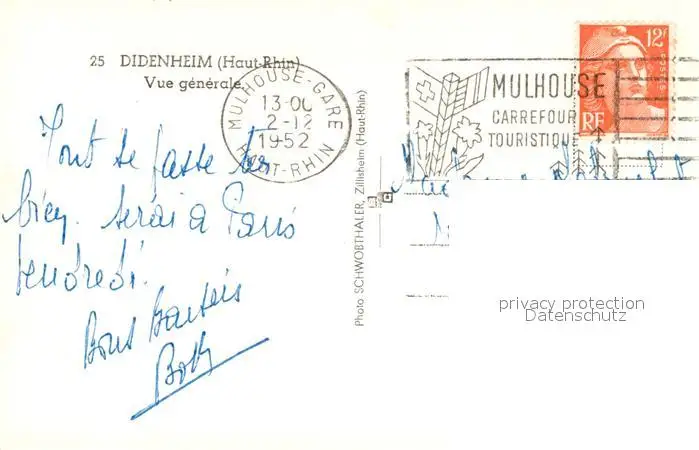 25 DIDENHEIM (Haut-Rhin)
Vue générale
MULHOUSE-GARE
13-00
2-12
1952
HAUT-RHIN
MULHOUSE
CARREFOUR
TOURISTIQUE
12F
POSTES
RF
Tout se passe très
bien. Serai à Paris
vendredi.
Bons baisers
Photo SCHWOBTHALER, Zillisheim (Haut-Rhin)
privacy protection
Datenschutz